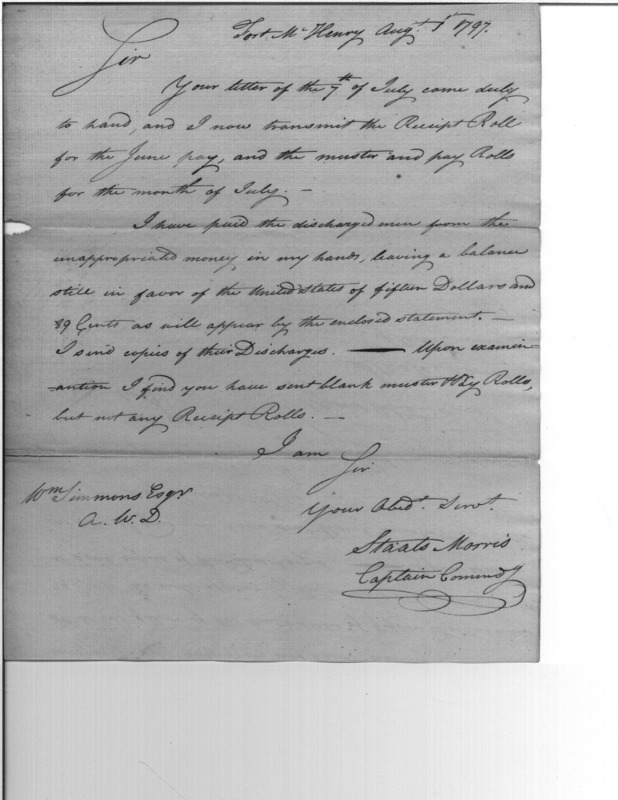 Fort McHenry Augt. 1st 1797.
Sir
Your letter of the 7th of July came duly
to hand, and I now transmit the Receipt Roll
for the June pay, and the muster and pay Rolls
for the month of July. —
I have paid the discharged men from the
unappropriated money in my hands, leaving a balance
still in favor of the United States of fifteen Dollars and
89 Cents as will appear by the enclosed statement. —
I send copies of their Discharges. — Upon examin-
aution I find you have sent blank muster & Pay Rolls,
but not any Receipt Rolls. —
I am Sir
Your Obedt. Servt.
Staats Morris
Captain Commdg
Wm Simmons Esqr
A. W. D.